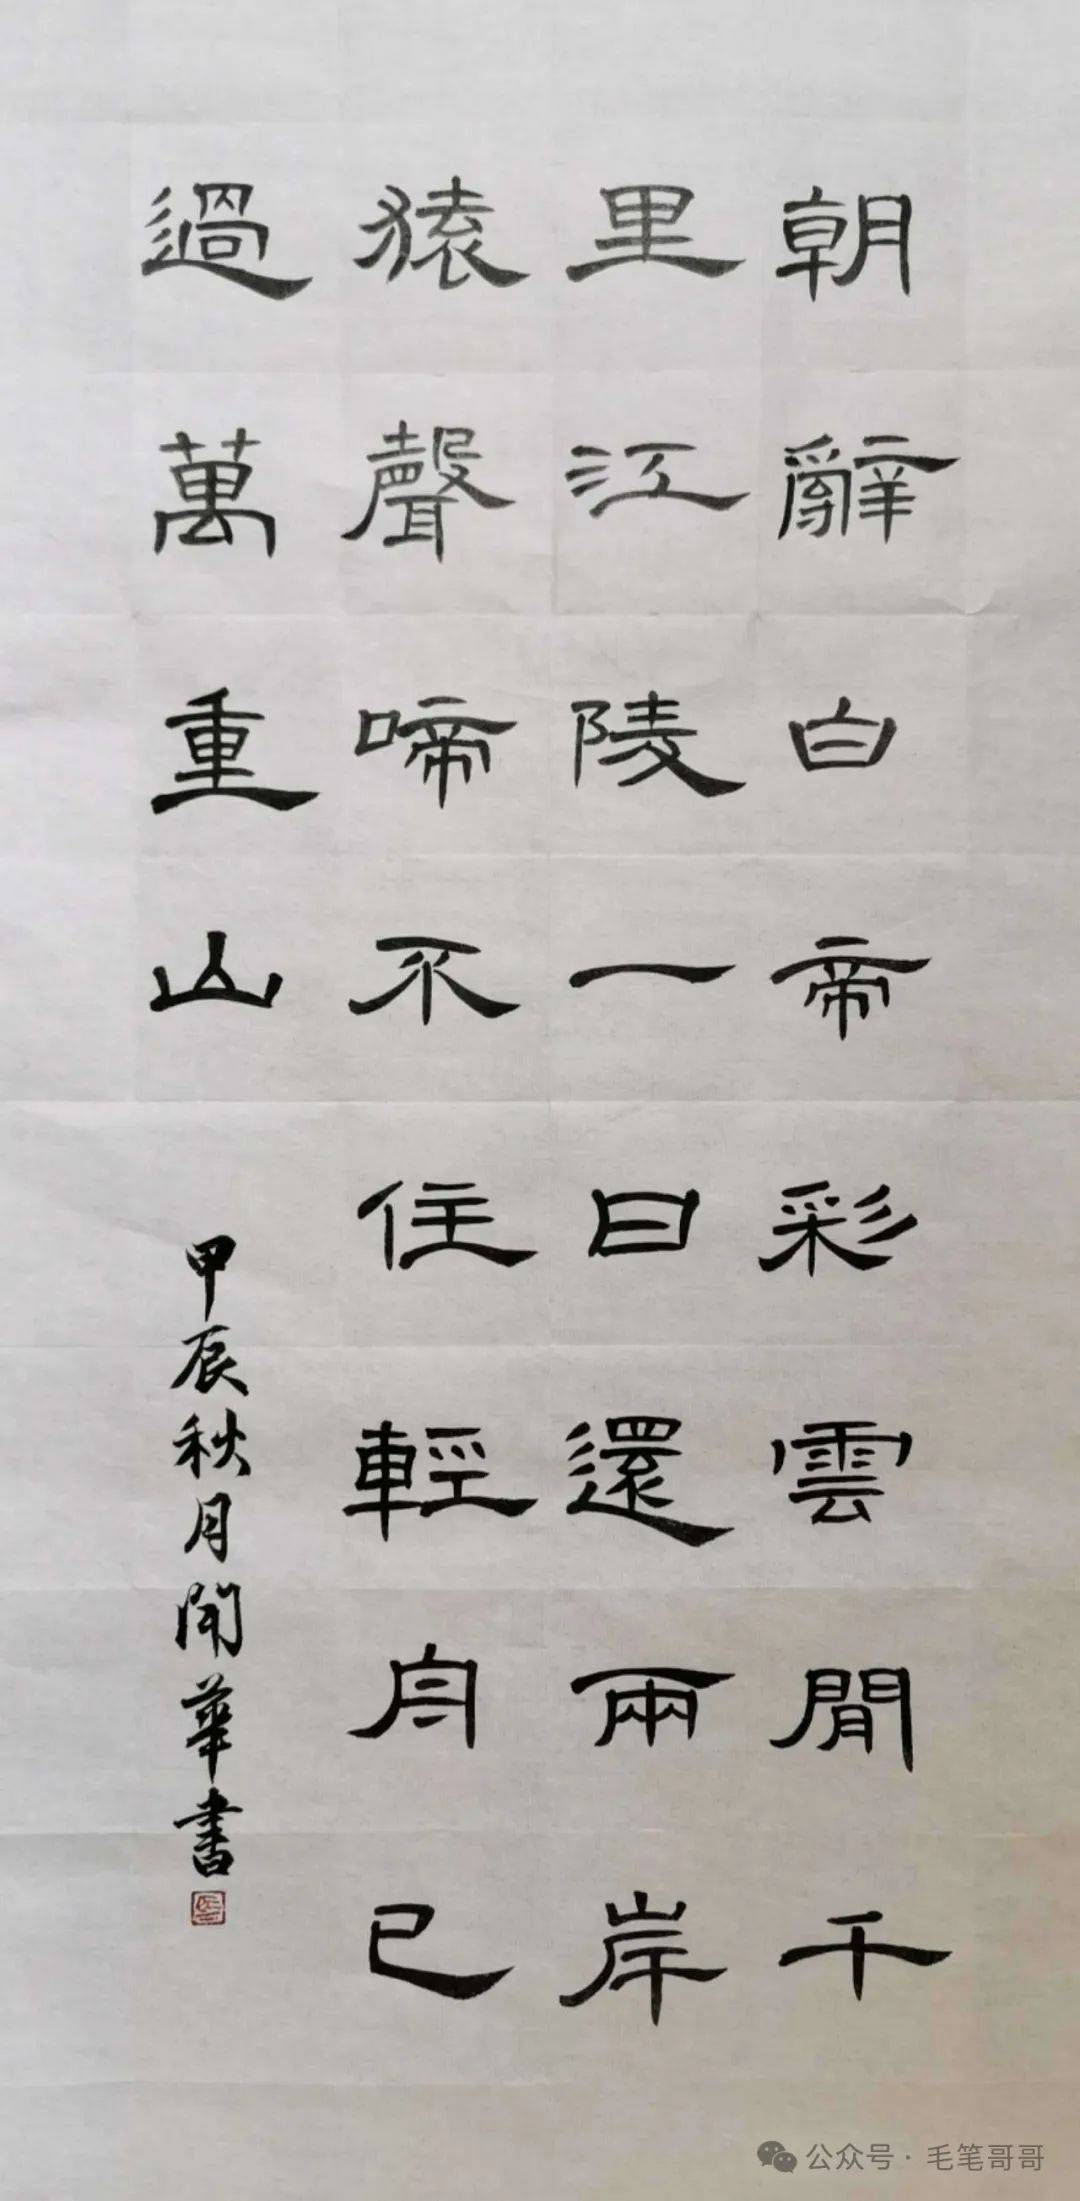 朝辭白帝彩雲閒千
里江陵一日還兩岸
猿聲啼不住輕舟已
過萬重山
甲辰秋月開華書
公众号 · 毛笔哥哥